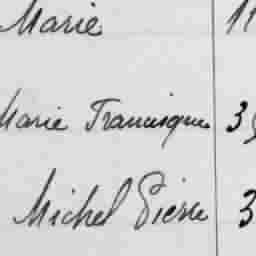 Marie 11
Marie Francisque 3
Michel Pierre 3